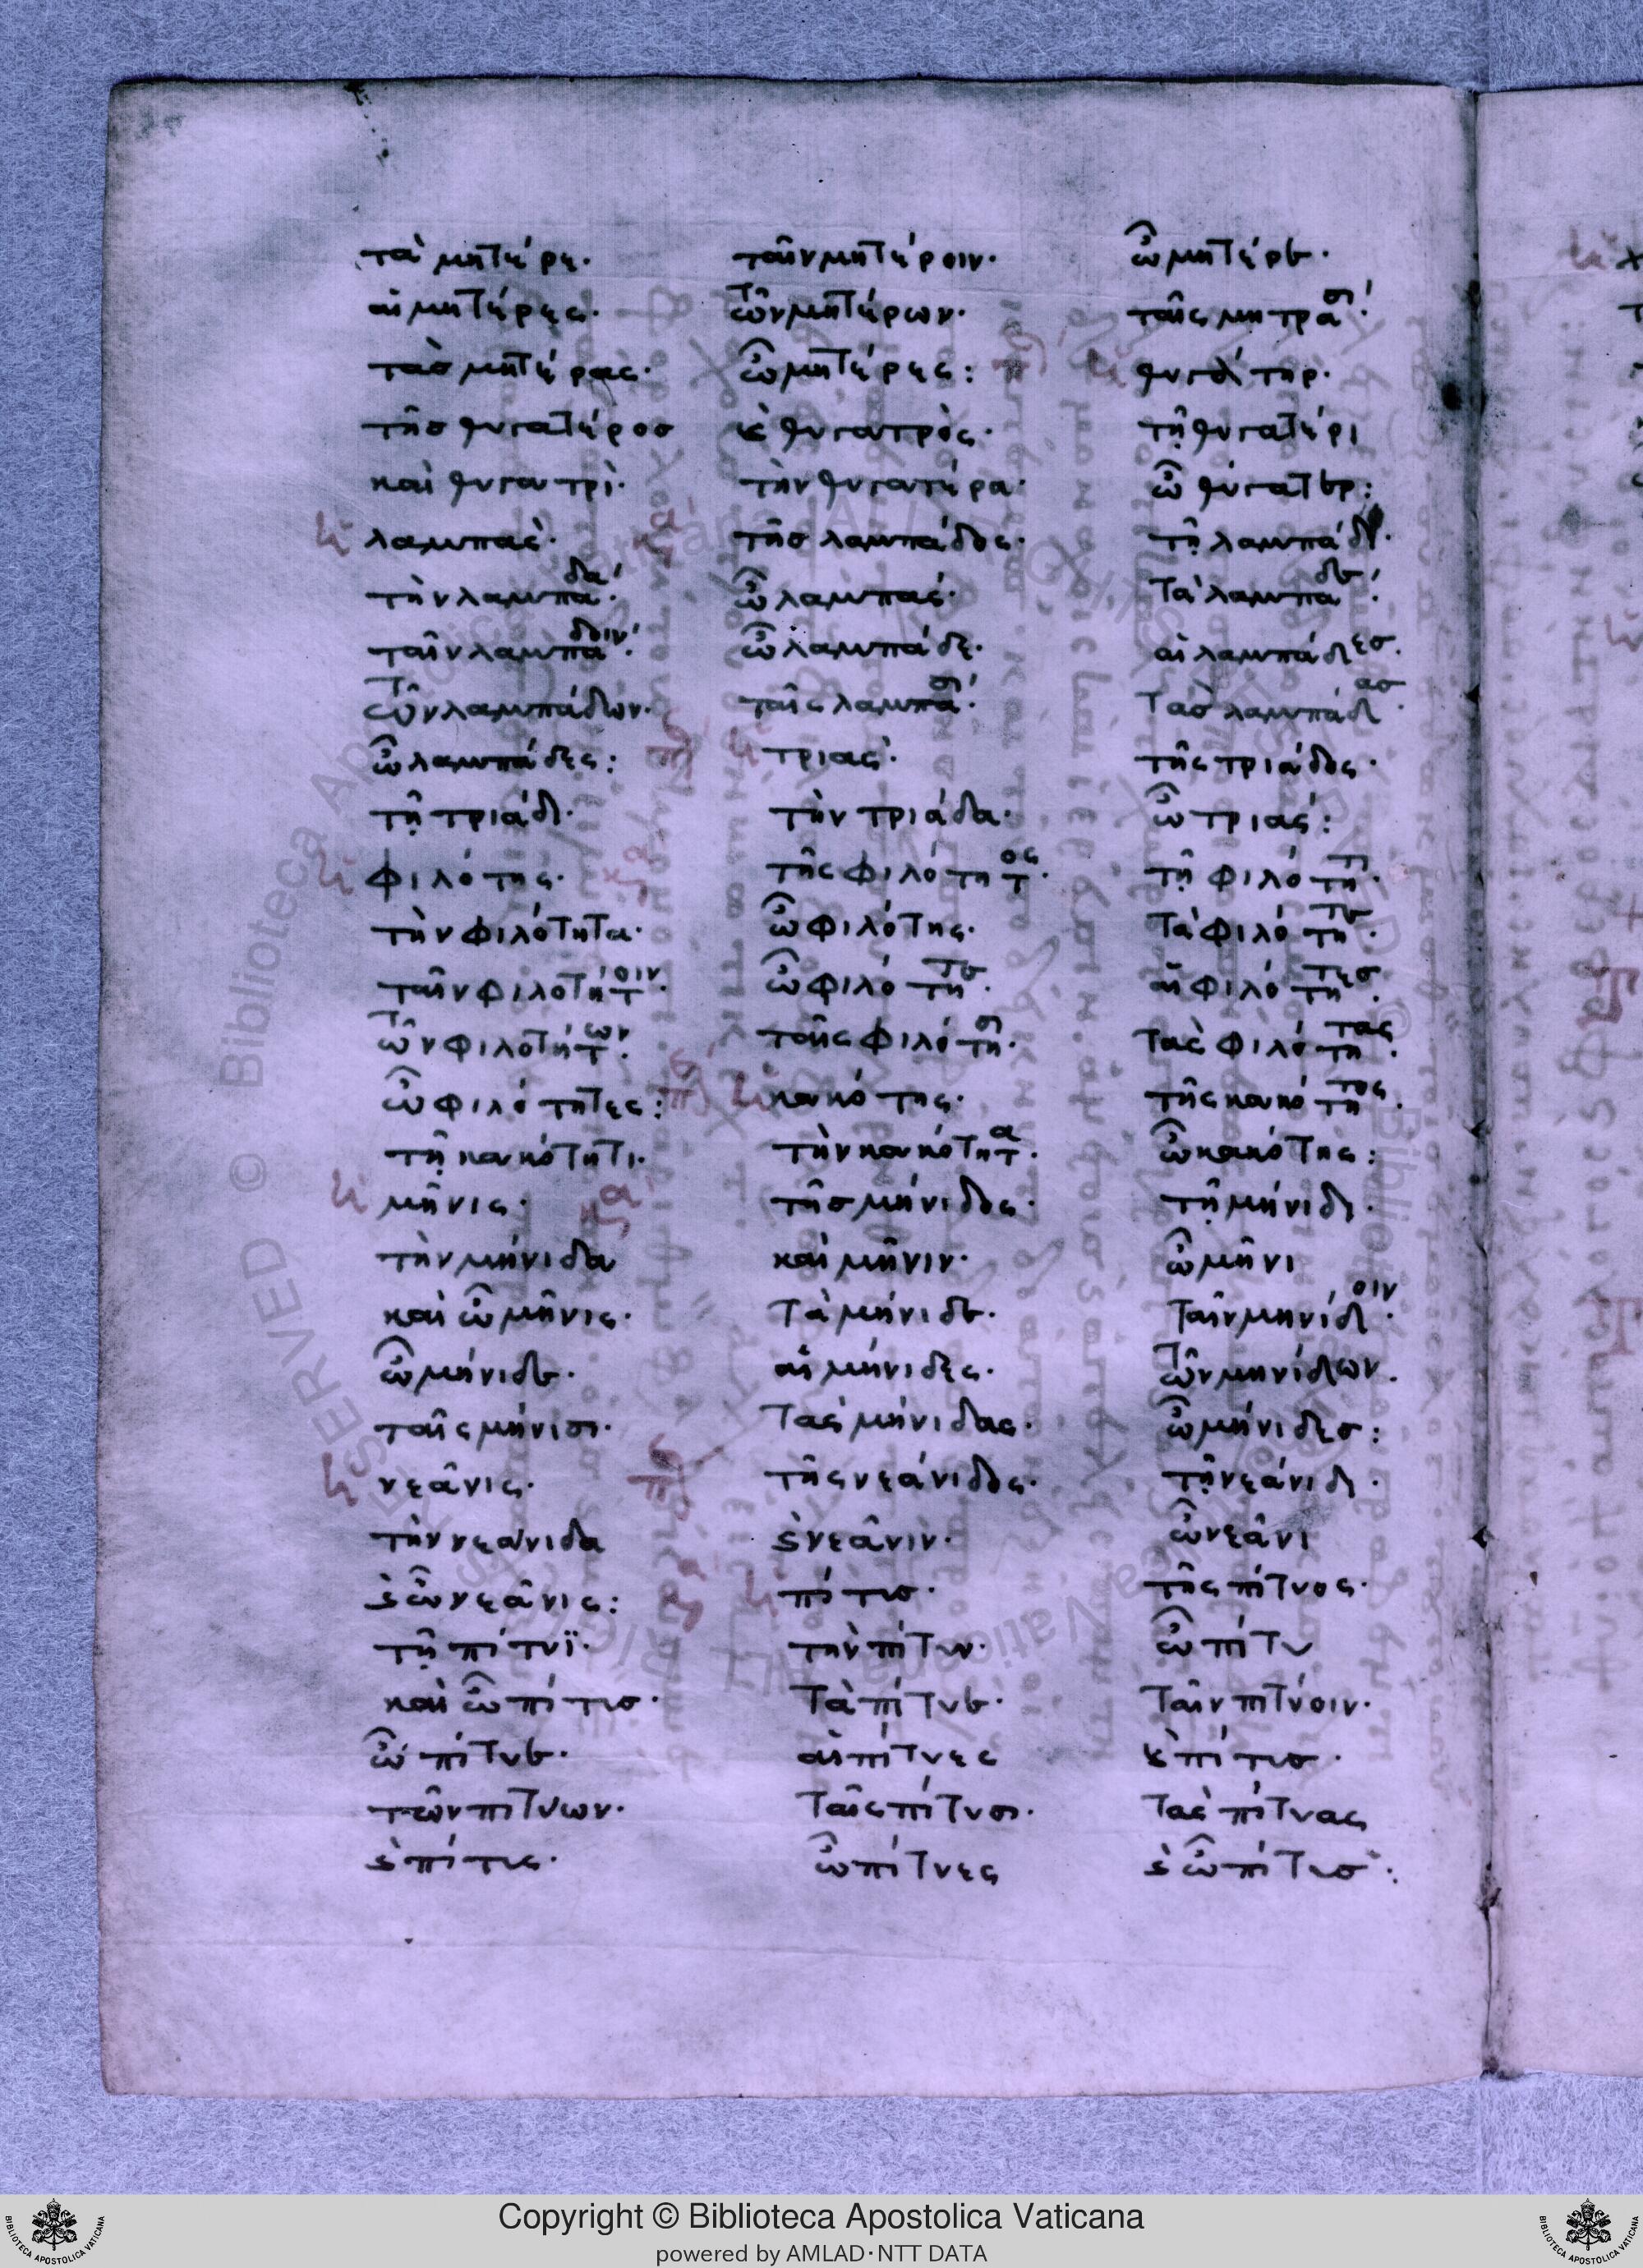 τὰ μητέρε· ταῖν μητέροιν· ὦ μητέρε·
αἱ μητέρες· τῶν μητέρων· ταῖς μητράσι·
τὰσ μητέρας· ὦ μητέρες: ἡ θυγάτηρ·
τῆσ θυγατέροσ κ θυγατρὸς· τῆ θυγατέρι
καὶ θυγατρὶ· τὴν θυγατέρα· ὦ θύγατερ:
ἡ λαμπὰς· τῆσ λαμπάδος· τῆ λαμπάδι·
τὴν λαμπάδα· ὦ λαμπάς· Τὰ λαμπάδε·
ταῖν λαμπάδοιν· ὦ λαμπάδε· αἱ λαμπάδεσ·
τῶν λαμπάδων· ταῖς λαμπάσι· Τὰσ λαμπάδασ·
ὦ λαμπάδες: ἡ τριὰς· τῆς τριάδος·
τῆ τριάδι· τὴν τριάδα· ὦ τριάς:
ἡ φιλότης· τῆς φιλότητος· τῆ φιλότητι·
τὴν φιλότητα· ὦ φιλότης· Τὰ φιλότητε·
ταῖν φιλοτήτοιν· ὦ φιλότητε· αἱ φιλότητεσ·
τῶν φιλοτήτων· ταῖς φιλότησι· Τὰς φιλότητας·
ὦ φιλότητες: ἡ κακότης· τῆς κακότητος·
τῆ κακότητι· τὴν κακότητα· ὦ κακότης:
ἡ μῆνις· τῆσ μήνιδος· τῆ μήνιδι·
τὴν μήνιδα καὶ μῆνιν· ὦ μῆνι
καὶ ὦ μῆνις· Τὰ μήνιδε· Ταῖν μηνίδοιν·
ὦ μήνιδε· αἱ μήνιδες· Τῶν μηνίδων·
ταῖς μήνισι· Τὰς μήνιδας· ὦ μήνιδεσ:
ἡ νεᾶνις· τῆς νεάνιδος· τῆ νεάνιδι·
τὴν νεάνιδα κ νεᾶνιν· ὦ νεᾶνι
κ ὦ νεᾶνις: ἡ πίτυσ· τῆς πίτυος·
τῆ πίτυϊ· τὴν πίτυν· ὦ πίτυ
καὶ ὦ πίτυσ· Τὰ πίτυε· Ταῖν πιτύοιν·
ὦ πίτυε· αἱ πίτυες κ πίτυσ·
τῶν πιτύων· Ταῖς πίτυσι· Τὰς πίτυας
κ πίτυς· ὦ πίτυες κ ὦ πίτυσ:
Copyright © Biblioteca Apostolica Vaticana
powered by AMLAD·NTT DATA